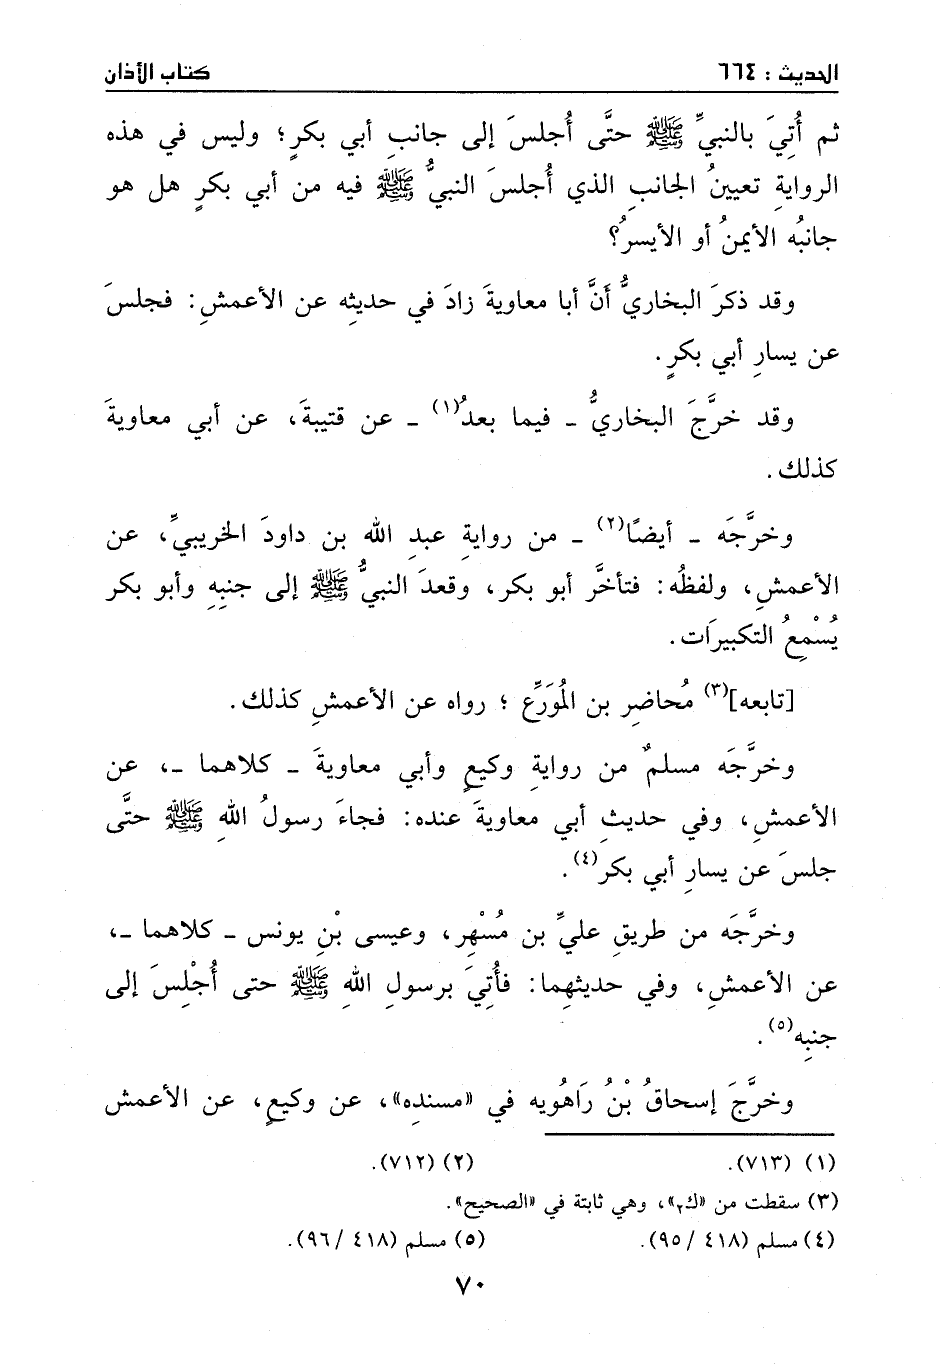 الحديث : ٦٦٤
كتاب الأذان
ثم أُتِيَ بالنبيِّ ﷺ حتَّى أُجلسَ إلى جانبِ أبي بكرٍ؛ وليس في هذه
الروايةِ تعيينُ الجانبِ الذي أُجلسَ النبيُّ ﷺ فيه من أبي بكرٍ هل هو
جانبُه الأيمنُ أو الأيسرُ؟
وقد ذكرَ البخاريُّ أَنَّ أبا معاويةَ زادَ في حديثِه عن الأعمشِ: فجلسَ
عن يسارِ أبي بكرٍ.
وقد خرَّجَ البخاريُّ ـ فيما بعدُ(١) ـ عن قتيبةَ، عن أبي معاويةَ
كذلك.
وخرَّجَه ـ أيضًا(٢) ـ من روايةِ عبدِ الله بن داودَ الخريبيِّ، عن
الأعمشِ، ولفظُه: فتأخَّر أبو بكر، وقعدَ النبيُّ ﷺ إلى جنبِهِ وأبو بكر
يُسْمِعُ التكبيرَات.
[تابعه](٣) مُحاضِر بن المُوَرِّع ؛ رواه عن الأعمشِ كذلك.
وخرَّجَه مسلمٌ من روايةِ وكيعٍ وأبي معاويةَ ـ كلاهما ـ، عن
الأعمشِ، وفي حديثِ أبي معاويةَ عنده: فجاءَ رسولُ اللهِ ﷺ حتَّى
جلسَ عن يسارِ أبي بكر(٤).
وخرَّجَه من طريقِ عليِّ بن مُسْهِر، وعيسى بْنِ يونس ـ كلاهما ـ،
عن الأعمشِ، وفي حديثِهما: فأُتِيَ برسولِ اللهِ ﷺ حتى أُجْلِسَ إلى
جنبِه(٥).
وخرَّجَ إسحاقُ بْنُ رَاهُويه في «مسندِه»، عن وكيعٍ، عن الأعمش
(١) (٧١٣).
(٢) (٧١٢).
(٣) سقطت من «ك٢»، وهي ثابتة في «الصحيح».
(٤) مسلم (٤١٨ /٩٥).
(٥) مسلم (٤١٨ /٩٦).
٧٠